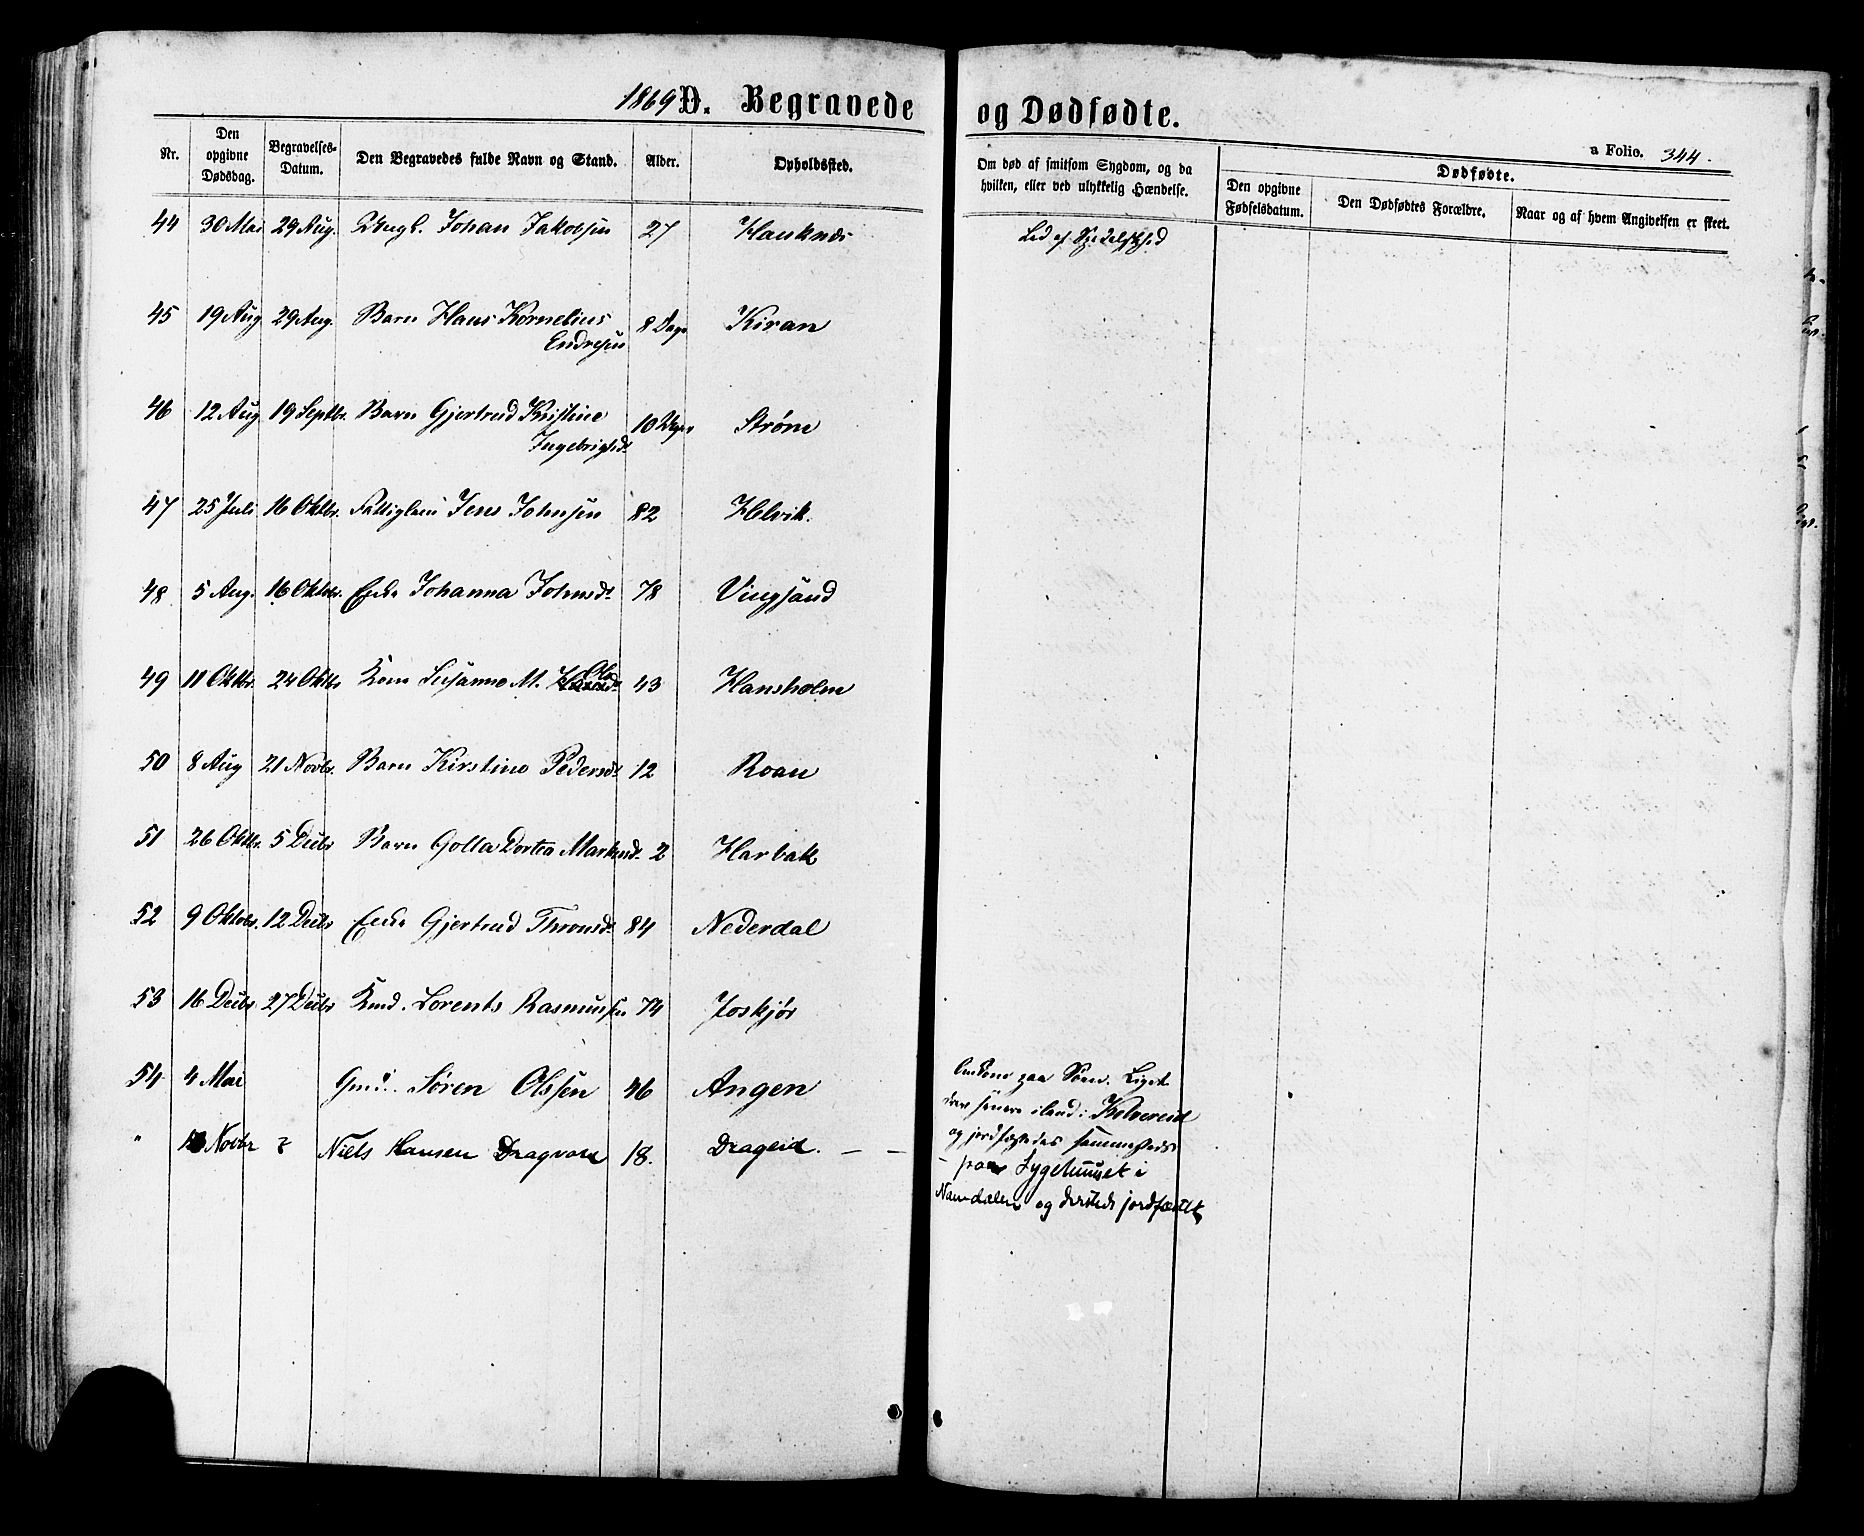 1869 D. Begravede og Dødfødte.
a Folio. 344.
Nr. | Den opgivne Dødsdag. | Begravelses-Datum. | Den Begravedes fulde Navn og Stand. | Alder. | Opholdssted. | Om død af smitsom Sygdom, og da hvilken, eller ved ulykkelig Hændelse. | Dødfødte. | Den opgivne Fødselsdatum. | Den Dødfødtes Forældre. | Naar og af hvem Angivelsen er skeet.
44 30 Mai 29 Aug. Ungk. Johan Jakobsen 27 Hauknæs Led af Spedalskhed
45 19 Aug 29 Aug. Barn Hans Kornelius 8 Dage Kiran
Endresen
46 12 Aug 19 Septbr. Barn Gjertrud Kristine 10 Uger Strøm
Ingebrigtsd.
47 25 Juli 16 Oktbr. Fattiglem Jens Johnsen 82 Helvik.
48 5 Aug. 16 Oktbr. Enke Johanna Johnsd. 78 Vingsand
49 11 Oktbr. 24 Oktbr Kone Susanna M. Ols 43 Hansholm
50 8 Aug 21 Novbr. Barn Kirstine Pedersd. 12 Roan
51 26 Oktbr. 5 Decbr Barn Golla Dortea Markusd. 2 Harbak
52 9 Oktobr. 12 Decbr Enke Gjertrud Thronsd. 84 Nederdal
53 16 Decbr 27 Decbr Lorents Rasmussen 74 Hoskjør
54 4 Mai Gmd. Søren Olssen 46 Angen Omkom paa Søen. Liget
drev senere iland i Kolvereid
og jordfæstedes sammesteds
" Novbr ? Niels Hansen Dragvold 18. Drageid. — — – paa Sygehuuset i
Namdalen og dersteds jordfæstet